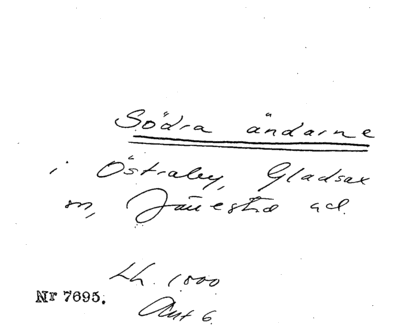 Södra ändarne
i Östraby, Gladsax
sn, Järrestad ad.
Lh. 1:000
Nr 7695.
Ant 6.